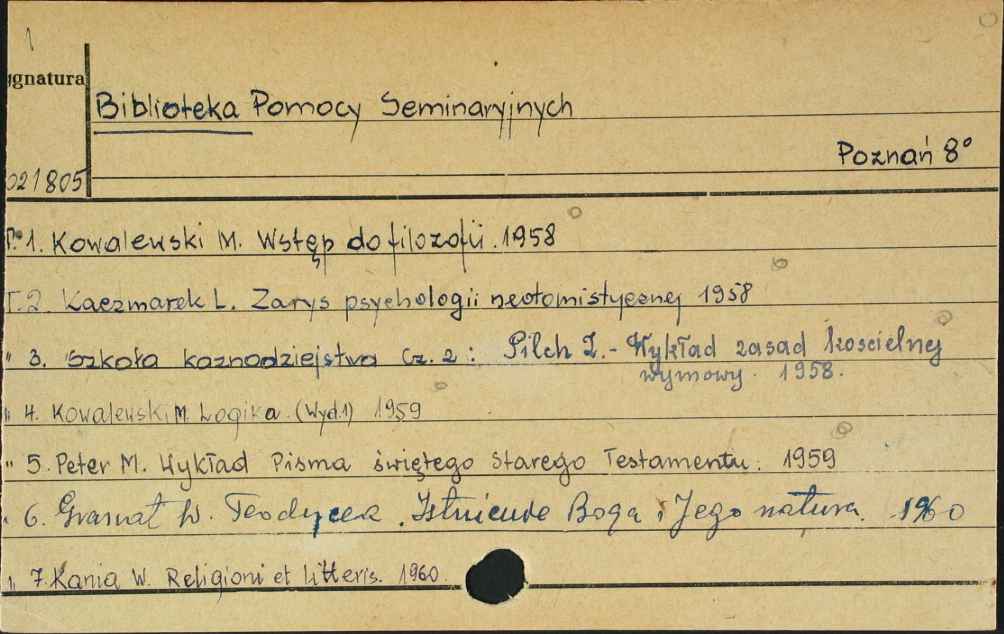 1
ignatura
Biblioteka Pomocy Seminaryjnych
Poznań 8°
021805
T. 1. Kowalewski M. Wstęp do filozofii. 1958
T. 2. Kaczmarek L. Zarys psychologii neotomistycznej 1958
" 3. Szkoła kaznodziejstwa Cz. 2: Pilch Z. - Wykład zasad kościelnej
wymowy. 1958.
" 4. Kowalewski M. Logika. (Wyd. 1) 1959
" 5. Peter M. Wykład Pisma świętego Starego Testamentu. 1959
" 6. Granat W. Teodycea. Istnienie Boga i Jego natura. 1960
" 7. Kania W. Religioni et litteris. 1960.